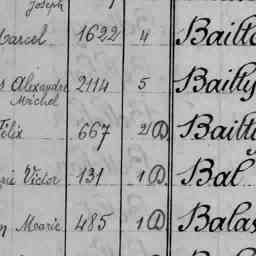 Joseph
Marcel 1622 4 Bailly
Alexandre 2114 5 Bailly
Michel
Félix 667 2 Ⓓ Bailly
Victor 131 1 Ⓓ Bal
Marie 485 1 Ⓓ Balas